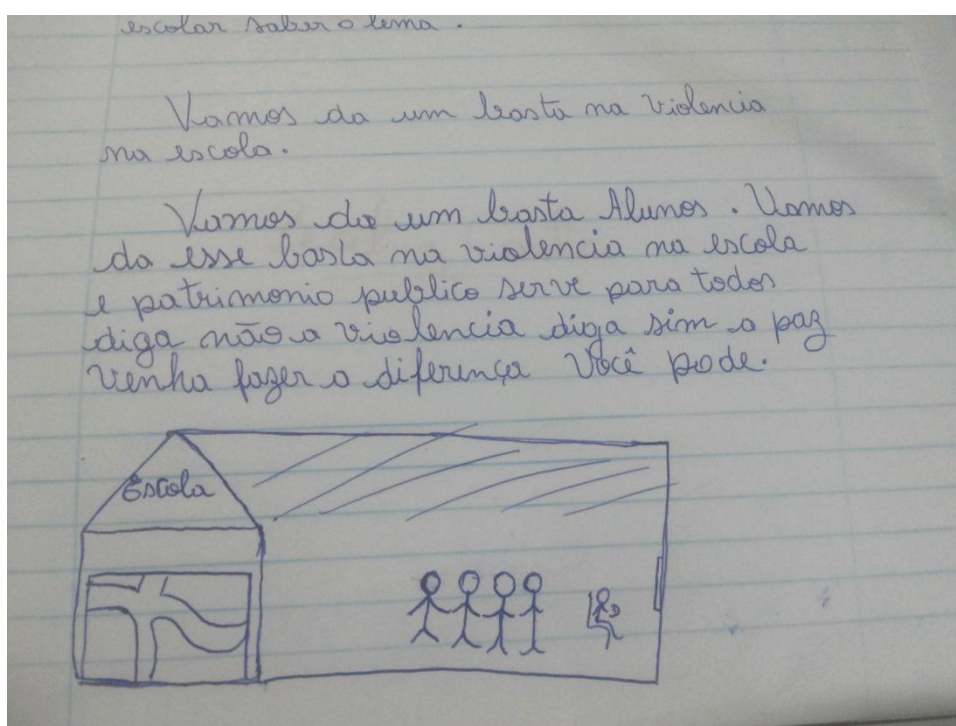 escolar saber o tema.
Vamos da um basta na violencia
na escola.
Vamos da um basta Alunos. Vamos
da esse basta na violencia na escola
e patrimonio publico serve para todos
diga não a violencia diga sim a paz
venha fazer a diferença Você pode.
Escola